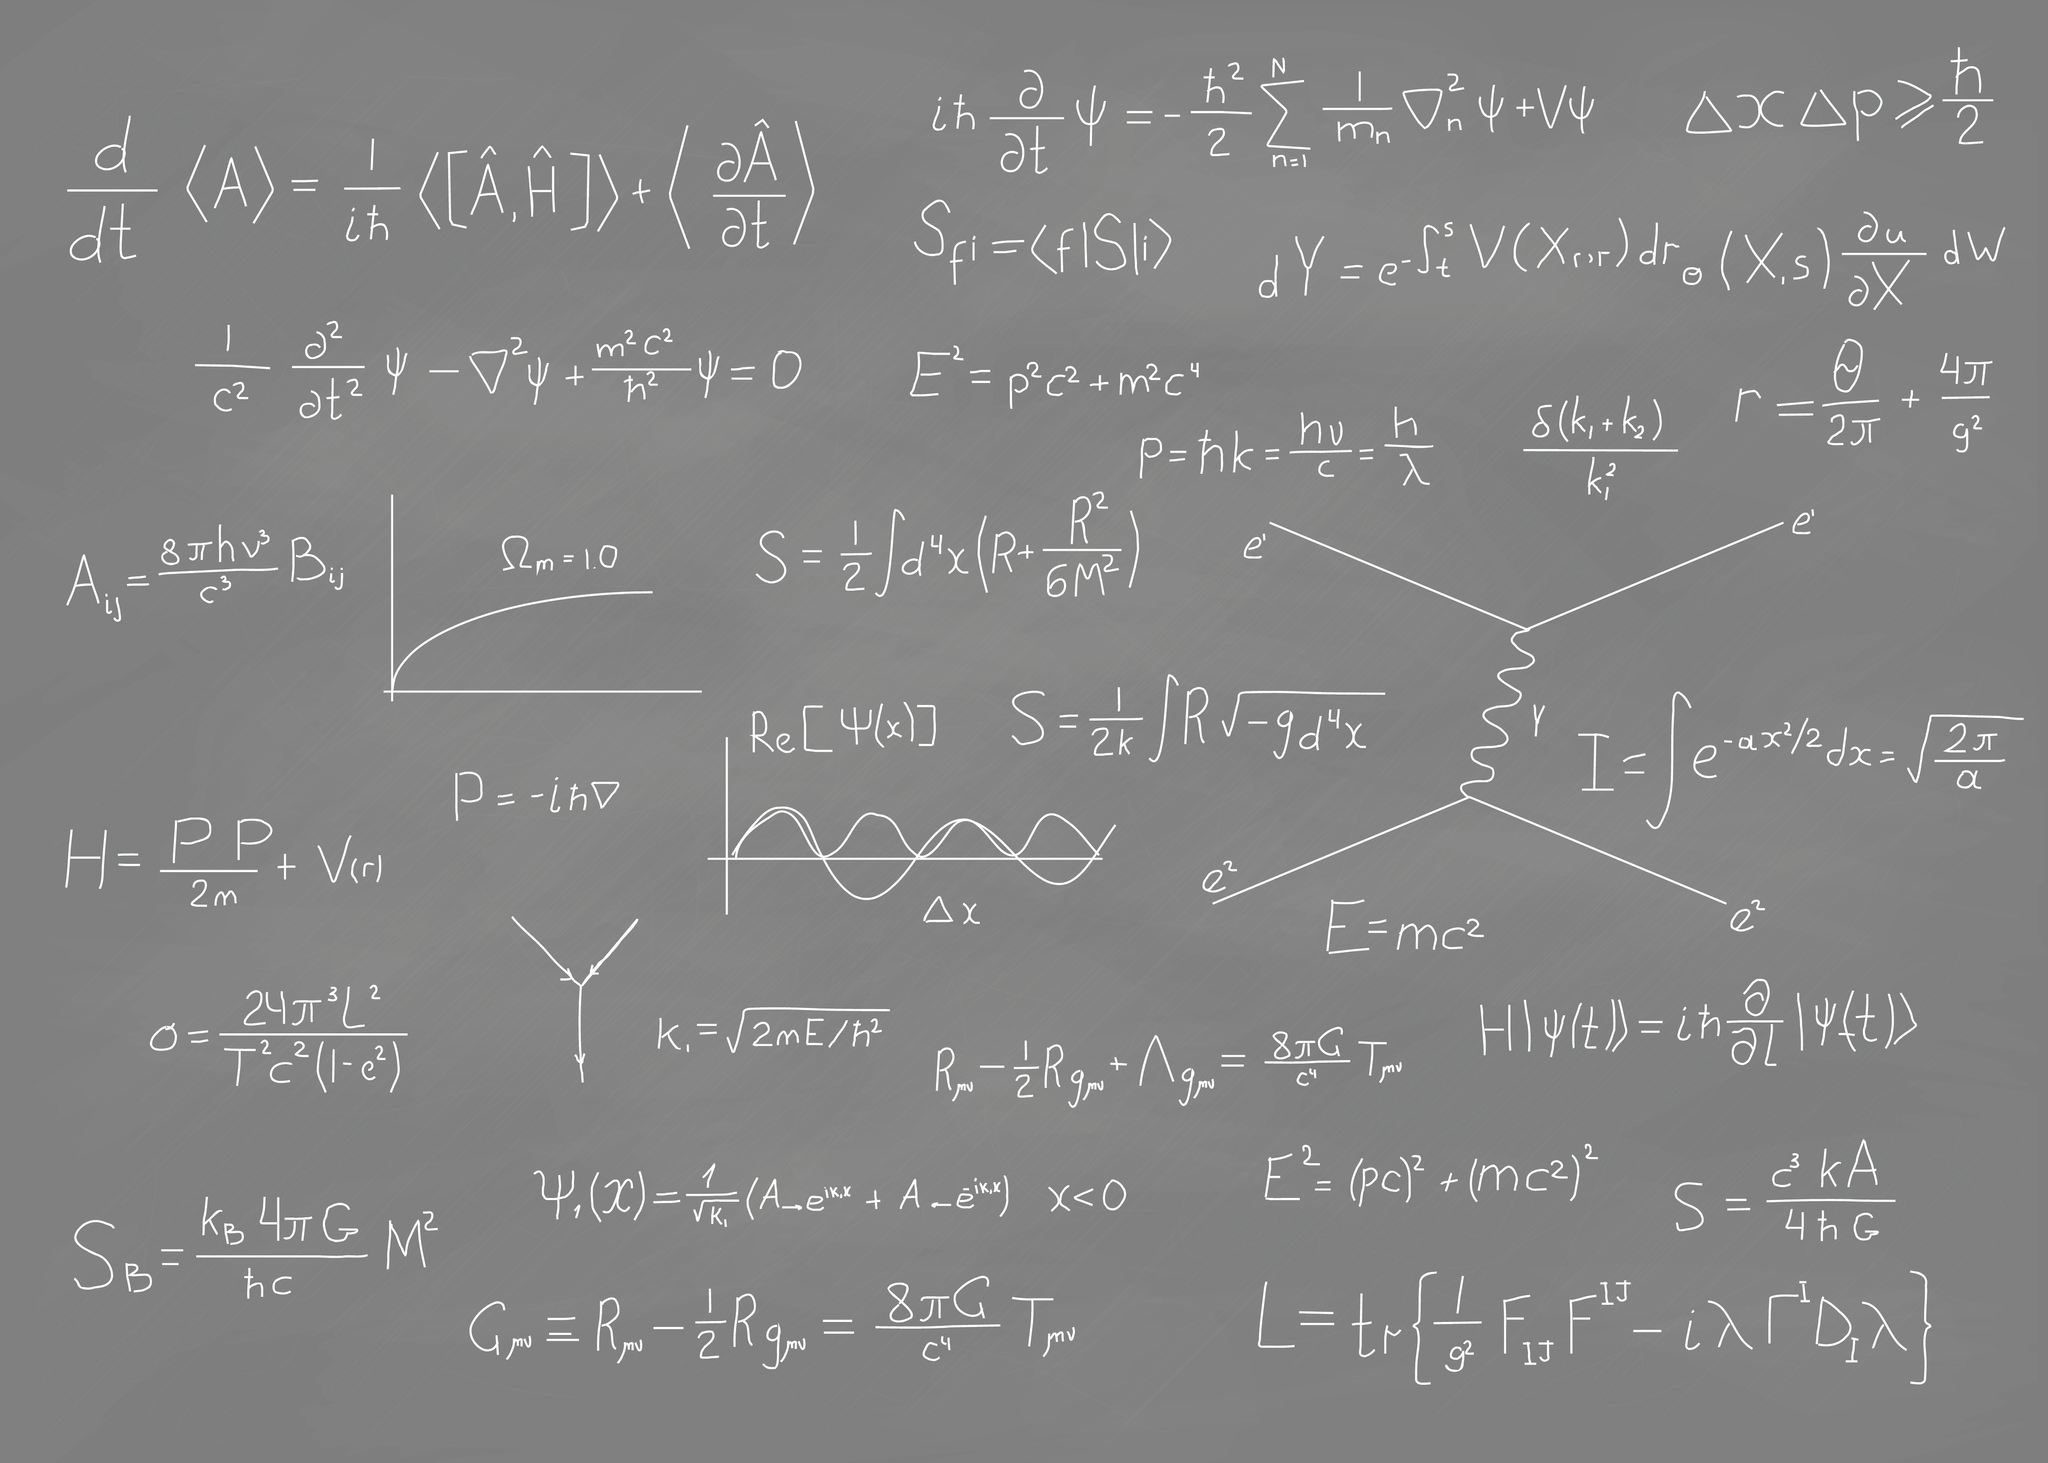 d/dt ⟨A⟩ = 1/iħ ⟨[Â, Ĥ]⟩ + ⟨∂Â/∂t⟩
iħ ∂/∂t ψ = - ħ²/2 ∑_{n=1}^{N} 1/m_n ∇_n² ψ + Vψ
Δx Δp ⩾ ħ/2
S_fi = ⟨f|S|i⟩
dY = e^-∫_t^s V(X_r,r) dr_σ (X,s) ∂u/∂X dW
1/c² ∂²/∂t² ψ - ∇²ψ + m²c²/ħ² ψ = 0
E² = p²c² + m²c⁴
r = θ/2π + 4π/g²
p = ħk = hν/c = h/λ
δ(k₁ + k₂)/k₁²
A_ij = 8πhν³/c³ B_ij
Ω_m = 1.0
S = 1/2 ∫d⁴x (R + R²/6M²)
e¹
e¹
γ
e²
e²
Re [Ψ(x)]
Δx
S = 1/2k ∫R √-g d⁴x
I = ∫e^{-ax²/2} dx = √2π/a
P = -iħ∇
H = P P/2m + V(r)
E = mc²
σ = 24π³L²/T²c²(1-e²)
k₁ = √2mE/ħ²
R_μν - 1/2 R g_μν + Λ g_μν = 8πG/c⁴ T_μν
H|ψ(t)⟩ = iħ ∂/∂t |ψ(t)⟩
S_B = k_B 4πG/ħc M²
ψ₁(x) = 1/√k₁ (A→ e^{ik₁x} + A← e^{-ik₁x}) x<0
E² = (pc)² + (mc2)²
S = c³kA/4ħG
G_μν ≡ R_μν - 1/2 R g_μν = 8πG/c⁴ T_μν
L = tr{1/g² F_IJ F^IJ - iλ Γ^I D_I λ}